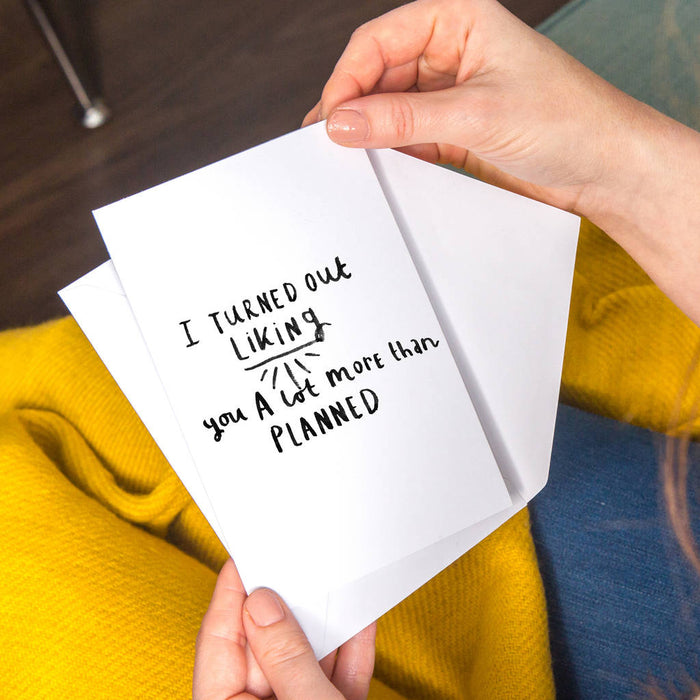 I TURNED OUt
LiKiNg
you A Lot moRE than
PLANNED